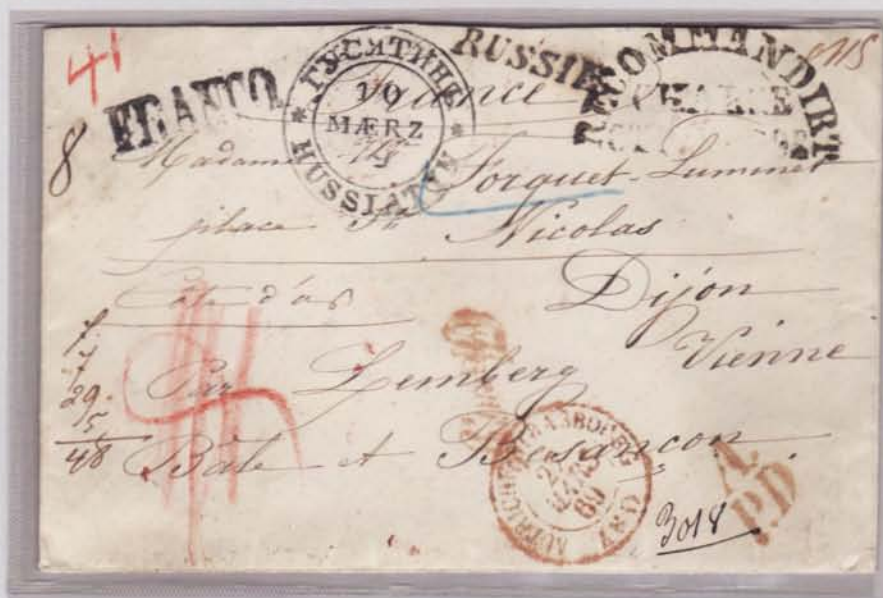 41
FRANCO
ГУСЯТИНЪ
19
MÆRZ
HUSSIATYN
RUSSIE
RECOMMANDIRT
France
8
Madame Forquet-Luminet
place St Nicolas
Côte d'or Dijon
Par Lemberg Vienne
Bâle et Besançon
7
29
5
48
AUTRICHE STRASBOURG
MARS
60
A.
P.D
3018